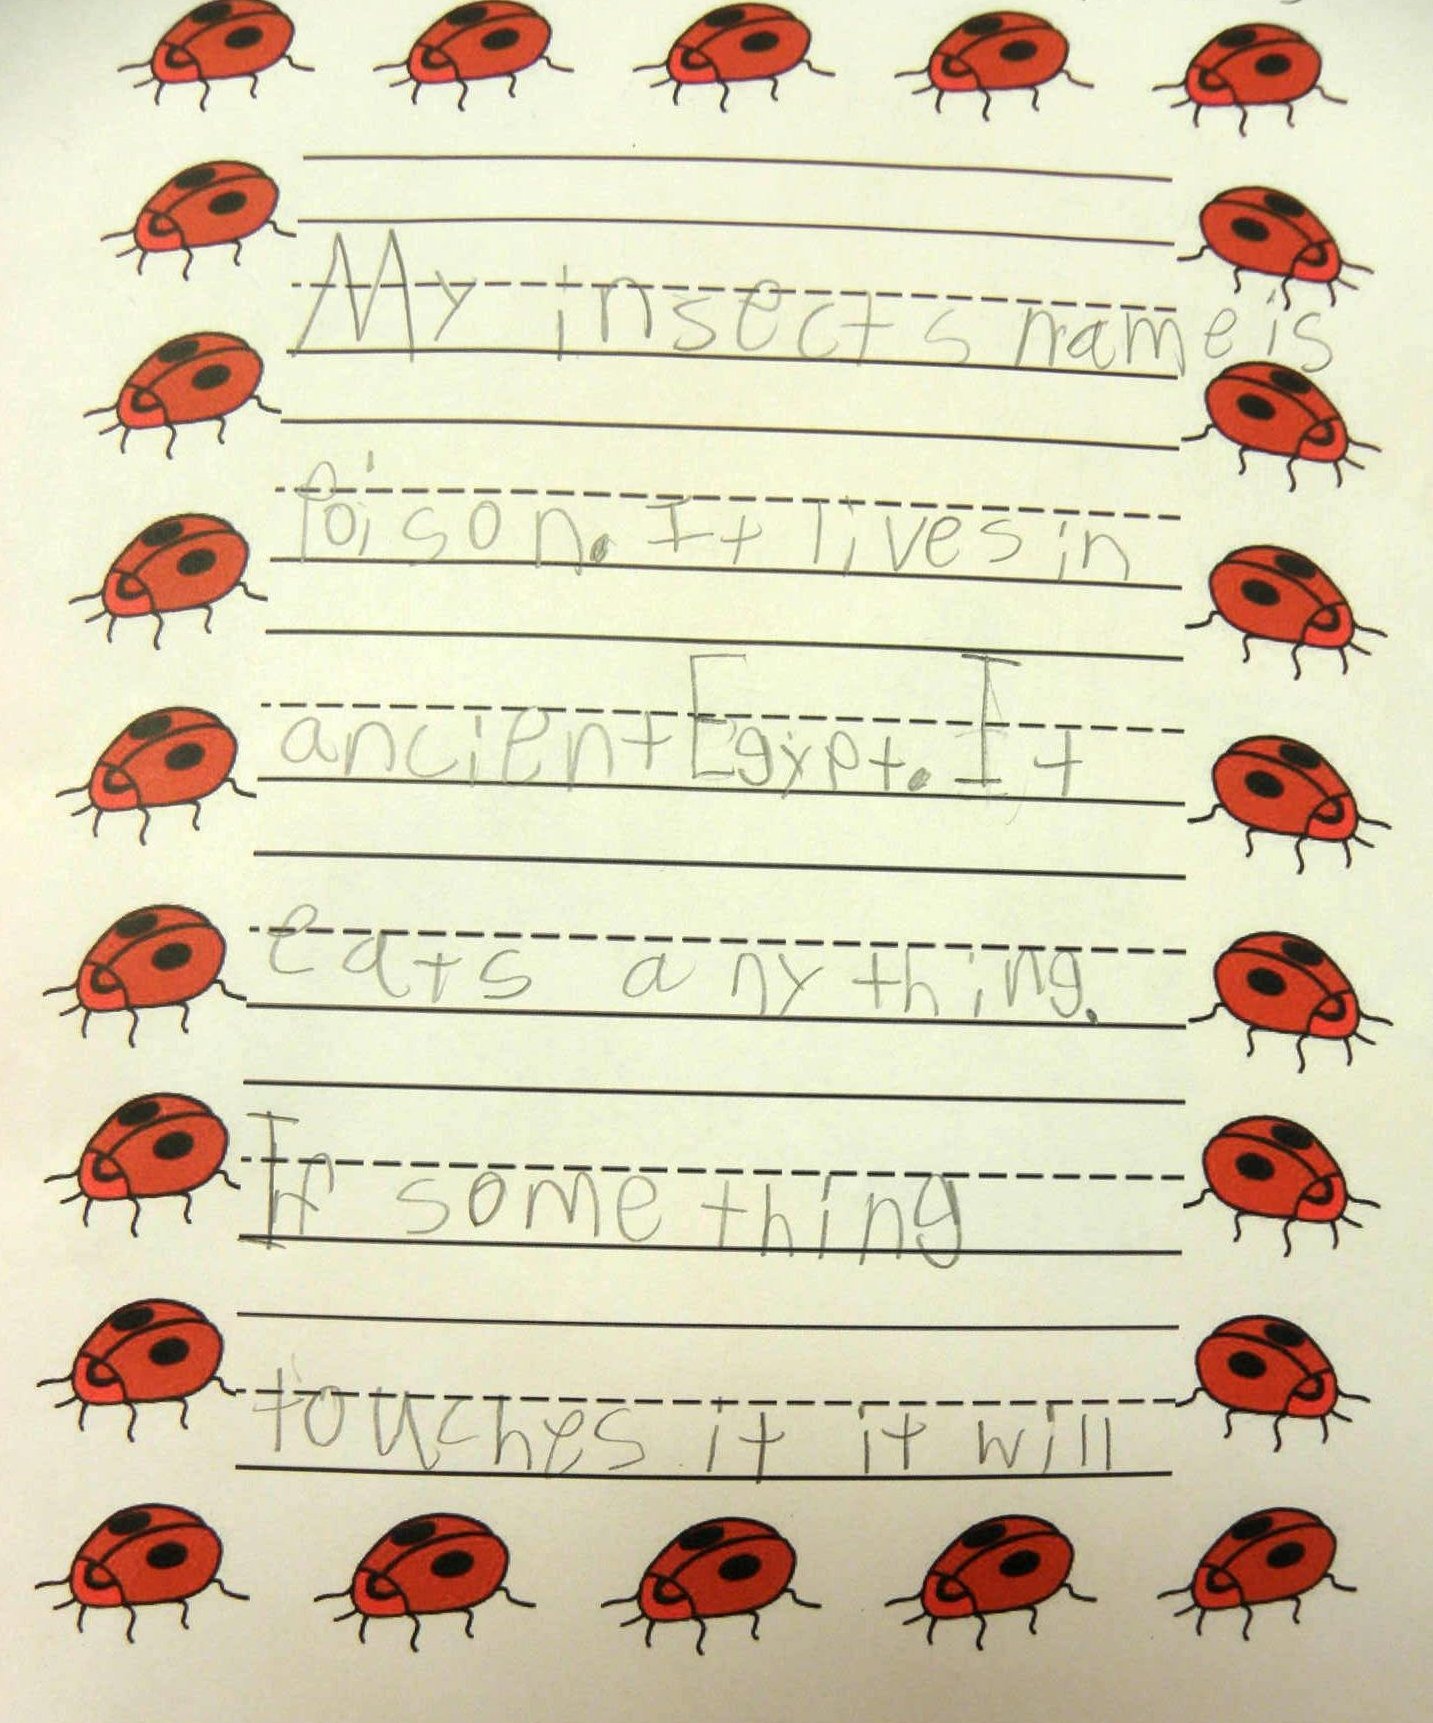 My insects name is
Poison. It lives in
ancient Egypt. It
eats any thing.
If some thing
touches it it will